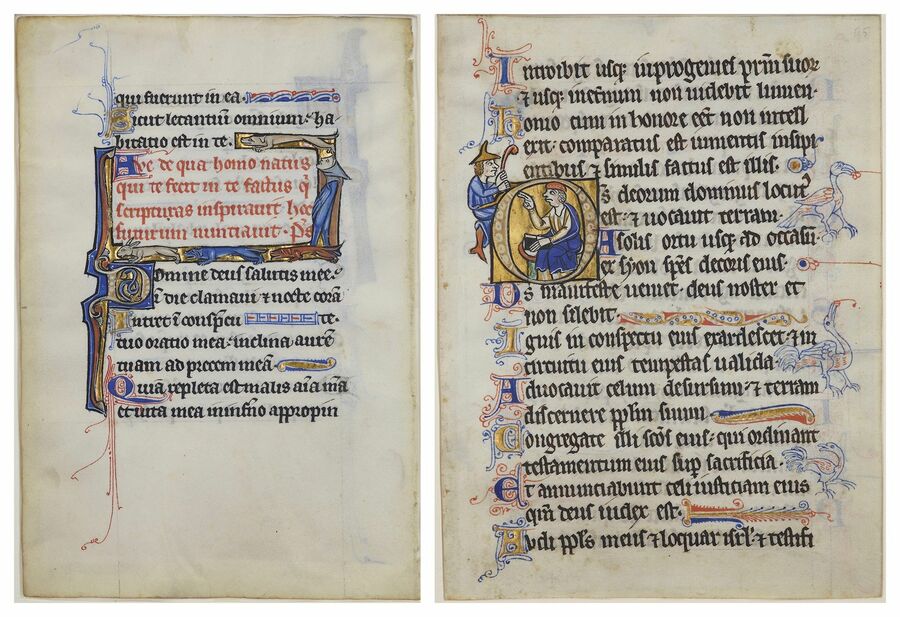 qui fuerunt in ea
Sicut letantium omnium ha
bitatio est in te.
Ave de qua homo natus
qui te fecit in te factus q̄
scripturas inspiravit hoc
futurum nuntiavit. Ps
Domine deus salutis mee:
ī die clamavi ⁊ nocte corā
Intret ī conspectu te.
tuo oratio mea: inclina aurē
tuam ad precem meā
Quia repleta est malis aīa mea
et vita mea ininf̄no appropin
Introibit usq; inprogenies prm̄ suor
⁊ usq; inet̄num non videbit lumen.
Homo cum in honore eēt non intell
exit: comparatus est iumentis insipi
entibus ⁊ similis factus est illis.
Ds deorum dominus locut᾽
est: ⁊ vocavit terram.
A solis ortu usq; ad occasū:
ex syon spēs decoris eius.
Ds manifeste veniet: deus noster et
non silebit.
Ignis in conspectu eius exardescet: ⁊ in
circuitu eius tempestas valida.
Advocavit celum desursum: ⁊ terram
discernere pplm̄ suum.
Congregate illi scōs eius: qui ordinant
testamentum eius sup sacrificia.
Et annunciabunt celi iusticiam eius
qm̄ deus iudex est.
Audi ppl̄s meus ⁊ loquar isrl̄: ⁊ testifi